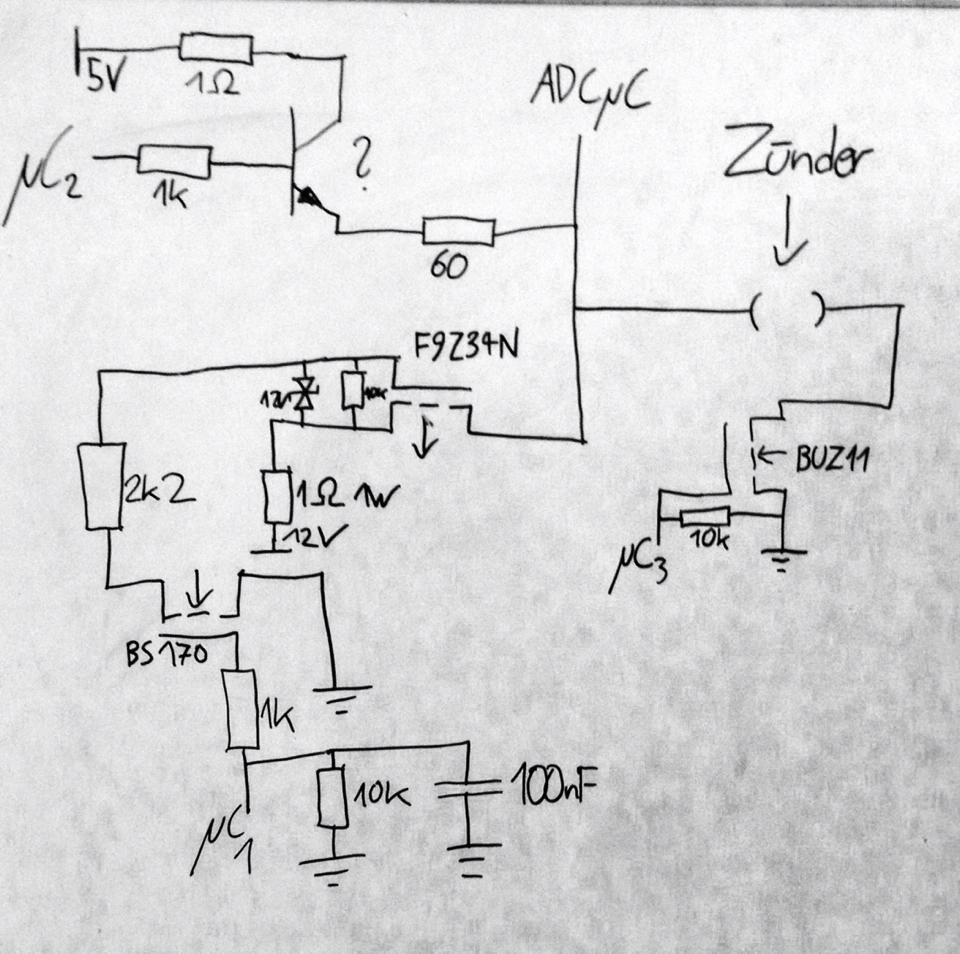 5V
1Ω
ADCµC
µC2
1k
?
Zünder
60
F9Z34N
12V
10k
2k2
1Ω 1W
12V
BUZ11
10k
µC3
BS170
1k
10k
100nF
µC1